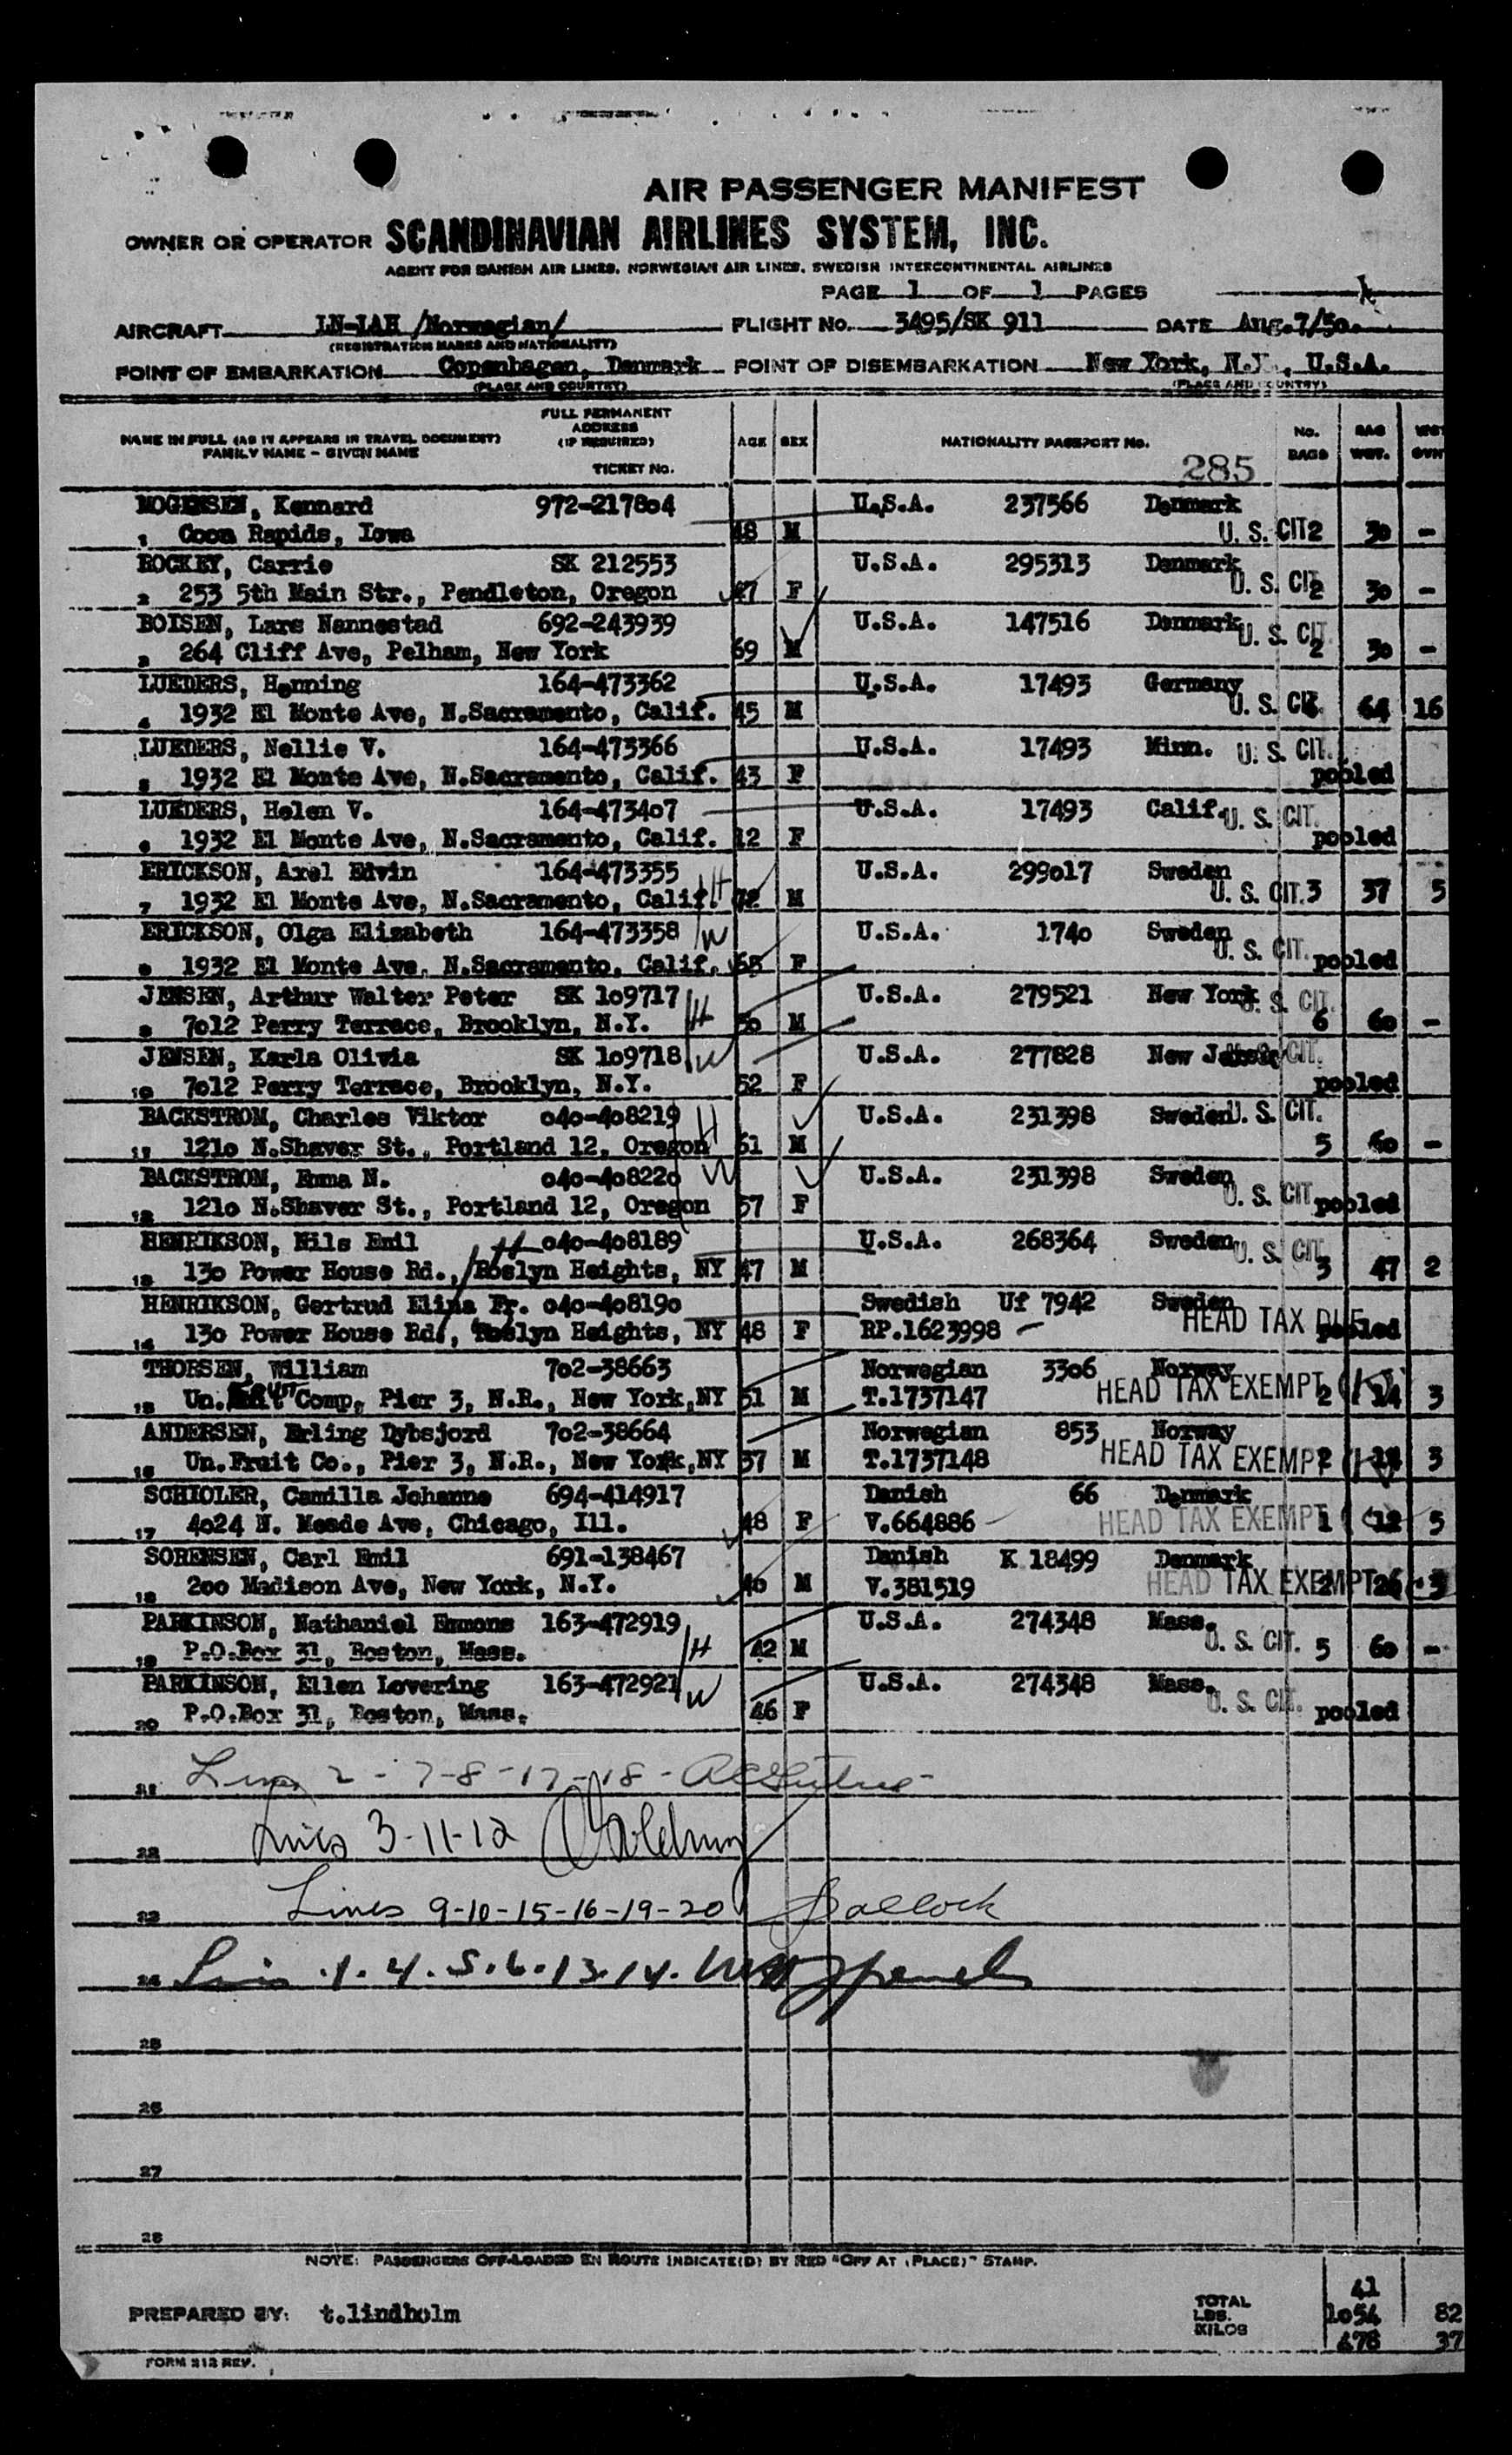 AIR PASSENGER MANIFEST
OWNER OR OPERATOR SCANDINAVIAN AIRLINES SYSTEM, INC.
AGENT FOR DANISH AIR LINES, NORWEGIAN AIR LINES, SWEDISH INTERCONTINENTAL AIRLINES
PAGE 1 OF 1 PAGES
AIRCRAFT LN-IAH /Norwegian/ FLIGHT NO. 3495/SK 911 DATE Aug.7/50.
(REGISTRATION MARKS AND NATIONALITY)
POINT OF EMBARKATION Copenhagen, Denmark POINT OF DISEMBARKATION New York, N.Y., U.S.A.
(PLACE AND COUNTRY) (PLACE AND COUNTRY)
NAME IN FULL (AS IT APPEARS IN TRAVEL DOCUMENT) FAMILY NAME – GIVEN NAME FULL PERMANENT ADDRESS (IF REQUIRED) TICKET NO. AGE SEX NATIONALITY PASSPORT NO. No. BAGS BAG WGT.
285
MOGENSEN, Kennard 972-217804 U.S.A. 237566 Denmark
1 Coon Rapids, Iowa 48 M U. S. CIT 2 30 -
ROCKEY, Carrie SK 212553 U.S.A. 295313 Denmark
2 253 5th Main Str., Pendleton, Oregon 47 F U. S. CIT 2 30 -
BOISEN, Lars Nannestad 692-243939 U.S.A. 147516 Denmark U. S. CIT.
3 264 Cliff Ave, Pelham, New York 69 M 2 30 -
LUEDERS, Henning 164-473362 U.S.A. 17493 Germany
4 1932 El Monte Ave, N.Sacramento, Calif. 45 M U. S. CIT. 64 16
LUEDERS, Nellie V. 164-473366 U.S.A. 17493 Minn. U. S. CIT.
5 1932 El Monte Ave, N.Sacramento, Calif. 43 F pooled
LUEDERS, Helen V. 164-473407 U.S.A. 17493 Calif. U. S. CIT.
6 1932 El Monte Ave, N.Sacramento, Calif. 12 F pooled
ERICKSON, Axel Edvin 164-473355 U.S.A. 299017 Sweden
7 1932 El Monte Ave, N.Sacramento, Calif. H 72 M U. S. CIT. 3 37 5
ERICKSON, Olga Elizabeth 164-473358 W U.S.A. 1740 Sweden
8 1932 El Monte Ave, N.Sacramento, Calif. 65 F U. S. CIT. pooled
JENSEN, Arthur Walter Peter SK 109717 U.S.A. 279521 New York U. S. CIT.
9 7012 Perry Terrace, Brooklyn, N.Y. H 50 M 6 60 -
JENSEN, Karla Olivia SK 109718 W U.S.A. 277828 New Jersey CIT.
10 7012 Perry Terrace, Brooklyn, N.Y. 52 F pooled
BACKSTROM, Charles Viktor 040-408219 H U.S.A. 231398 Sweden U. S. CIT.
11 1210 N.Shaver St., Portland 12, Oregon 61 M 5 60 -
BACKSTROM, Emma N. 040-408220 W U.S.A. 231398 Sweden
12 1210 N.Shaver St., Portland 12, Oregon 57 F U. S. CIT. pooled
HENRIKSON, Nils Emil H 040-408189 U.S.A. 268364 Sweden U. S. CIT.
13 130 Power House Rd., Roslyn Heights, NY 47 M 3 47 2
HENRIKSON, Gertrud Elina Fr. 040-408190 Swedish Uf 7942 Sweden
14 130 Power House Rd., Roslyn Heights, NY 48 F RP.1623998 HEAD TAX DUE pooled
THORSEN, William 702-38663 Norwegian 3306 Norway
15 Un. Fruit Comp, Pier 3, N.R., New York,NY 51 M T.1737147 HEAD TAX EXEMPT 2 14 3
ANDERSEN, Erling Dybsjord 702-38664 Norwegian 853 Norway
16 Un.Fruit Co., Pier 3, N.R., New York,NY 37 M T.1737148 HEAD TAX EXEMPT 2 3
SCHIOLER, Camilla Johanne 694-414917 Danish 66 Denmark
17 4024 N. Meade Ave, Chicago, Ill. 48 F V.664886 HEAD TAX EXEMPT 1 12 5
SORENSEN, Carl Emil 691-138467 Danish K 18499 Denmark
18 200 Madison Ave, New York, N.Y. 46 M V.381519 HEAD TAX EXEMPT 2 26 3
PARKINSON, Nathaniel Emmons 163-472919 U.S.A. 274348 Mass.
19 P.O.Box 31, Boston, Mass. H 42 M U. S. CIT. 5 60 -
PARKINSON, Ellen Lovering 163-472921 W U.S.A. 274348 Mass.
20 P.O.Box 31, Boston, Mass. 46 F U. S. CIT. pooled
21 Lines 2-7-8-17-18-
22 Lines 3-11-12
23 Lines 9-10-15-16-19-20
24 Lines 1.4.5.6.13.14.
25
26
27
28
NOTE: PASSENGERS OFF-LOADED EN ROUTE INDICATE(D) BY RED "OFF AT (PLACE)" STAMP.
41
PREPARED BY: t.lindholm TOTAL LBS. 1054 82
KILOS 478 37
FORM 212 REV.